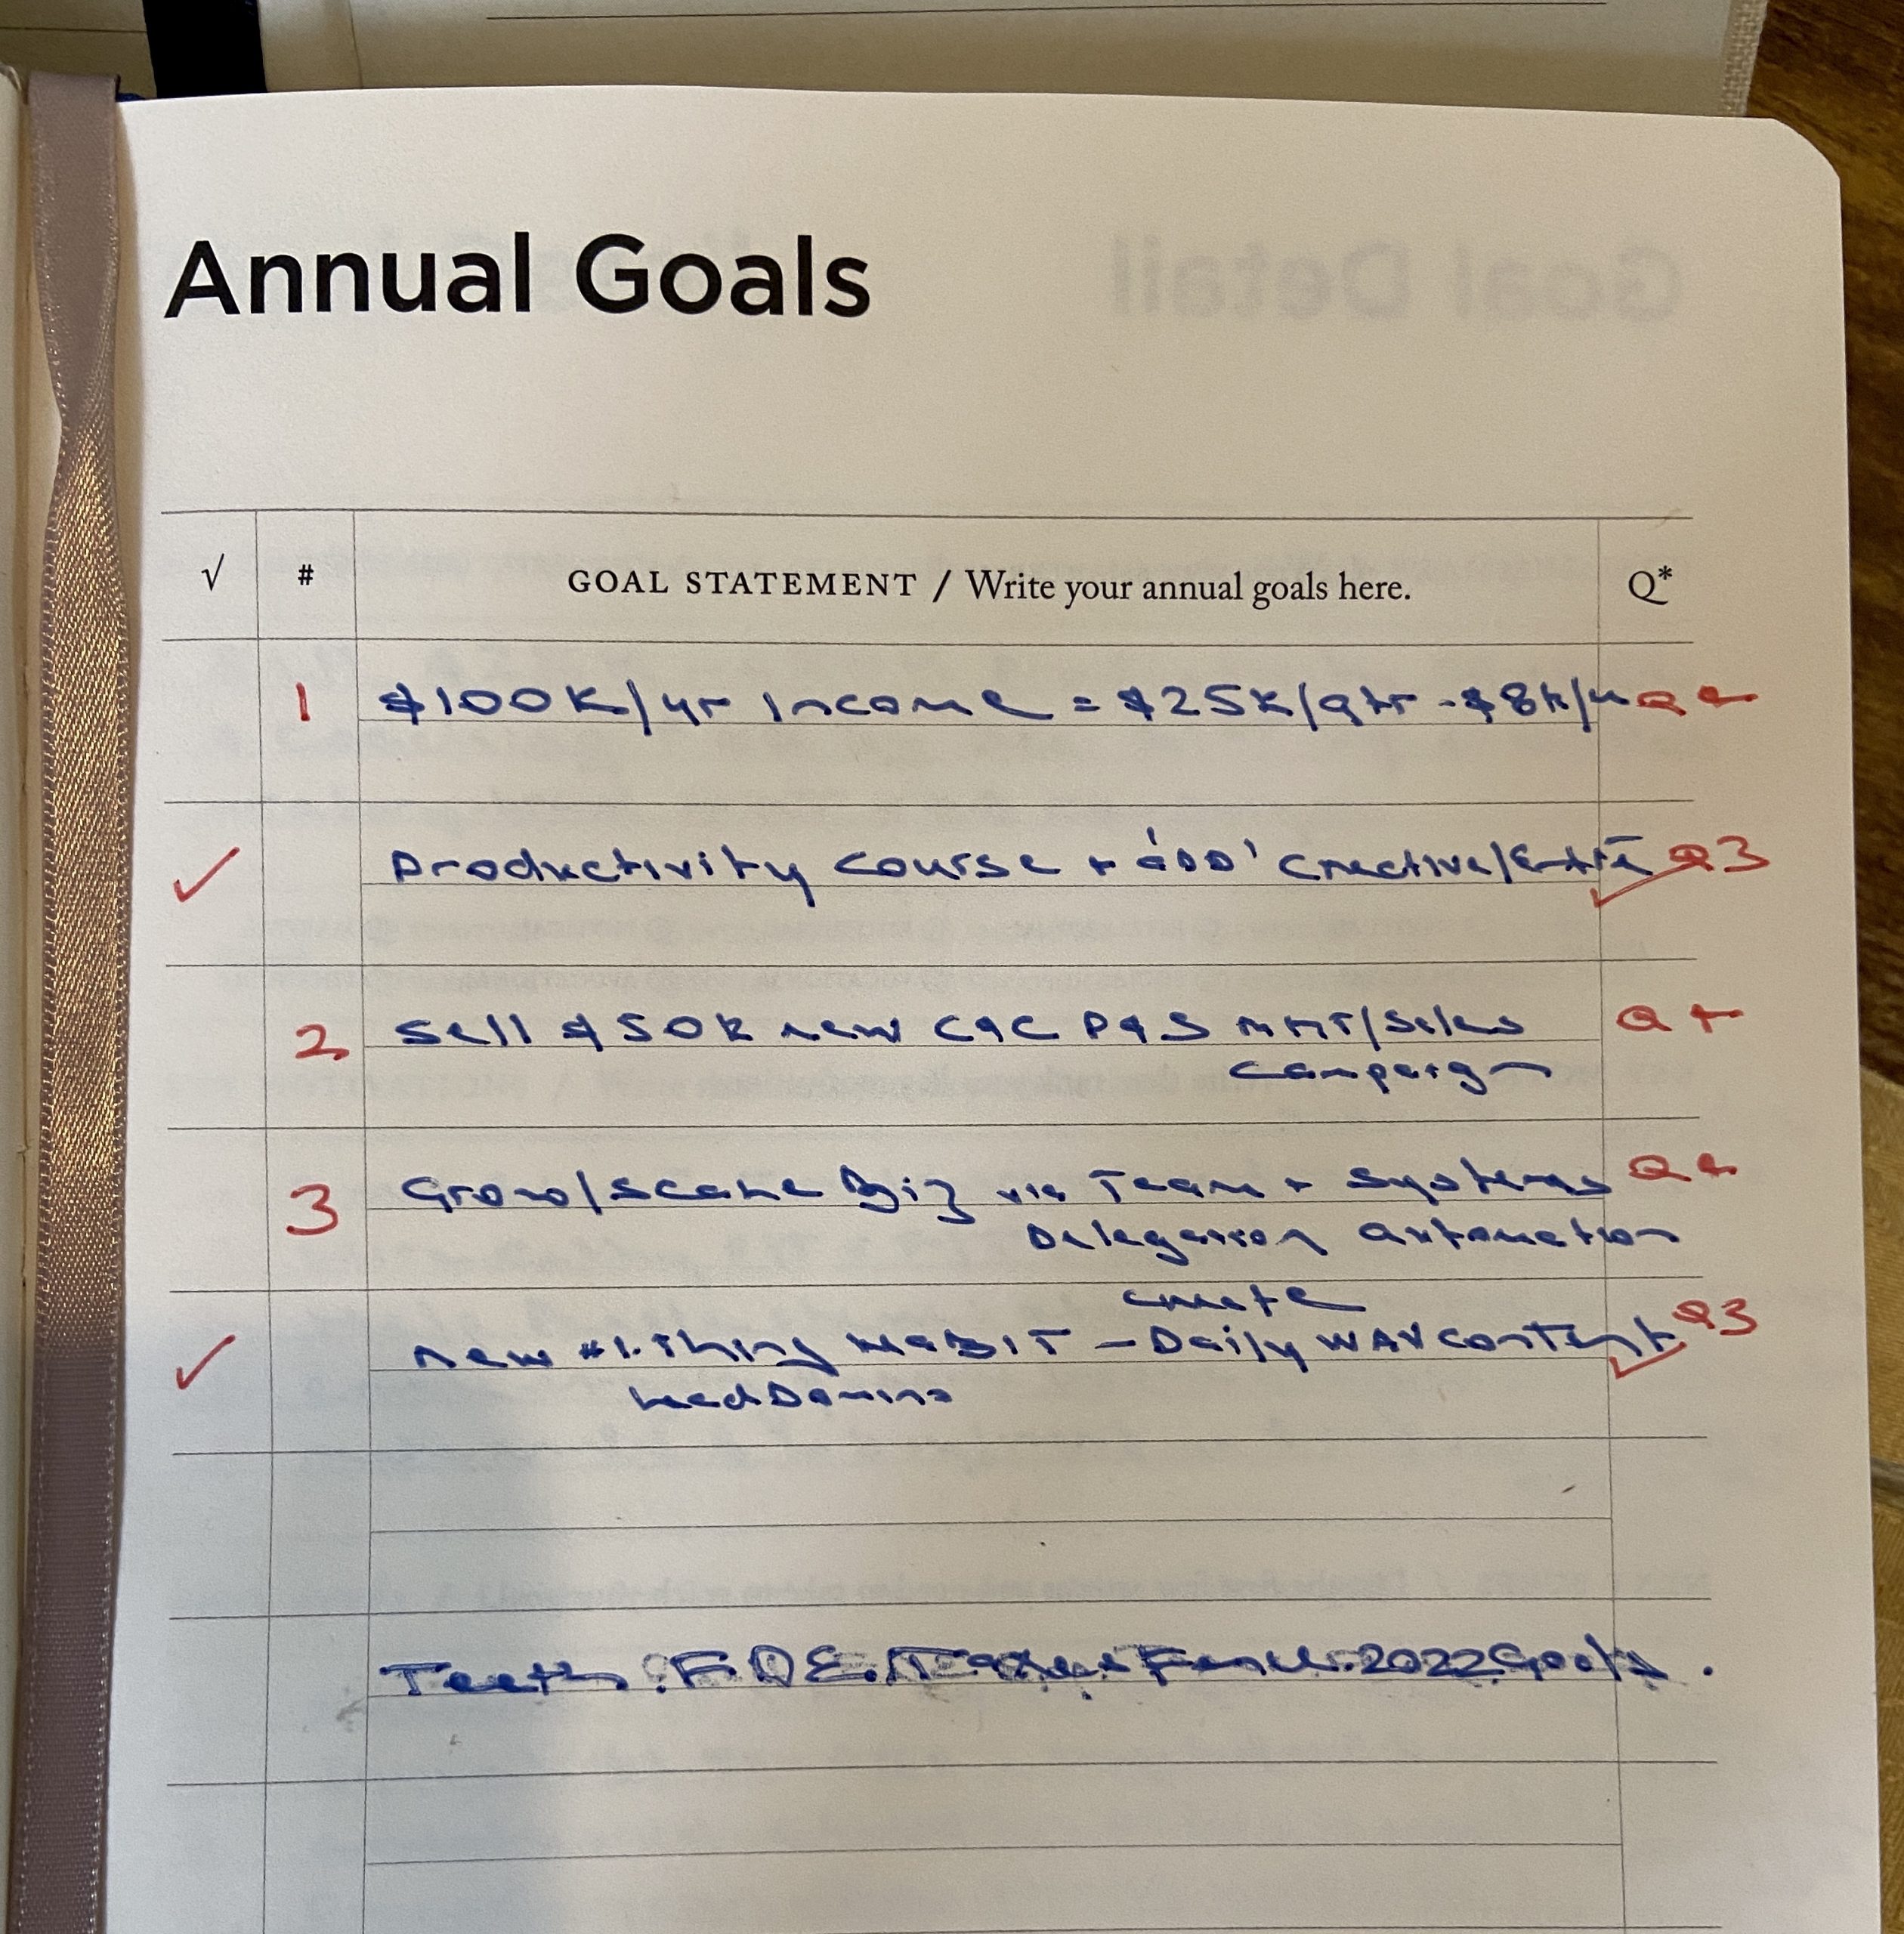 Annual Goals
√ # GOAL STATEMENT / Write your annual goals here. Q*
1 $100K/yr Income = $25K/qtr - $8K/
✓ Productivity Course + 'ADD' Creative/ Q3
2 Sell $50K new C&C P&S MKT/Sales Q4
Campaign
3 Grow/Scale Biz via Team + Systems Q4
Delegation Automation
Create
✓ New #1 Thing HABIT - Daily WAV Content Q3
Lead Domino
Teeth 2022 Goals.
Goal Detail